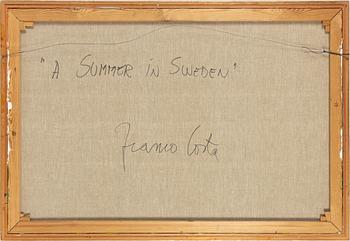 "A SUMMER IN SWEDEN"
Franco Costa